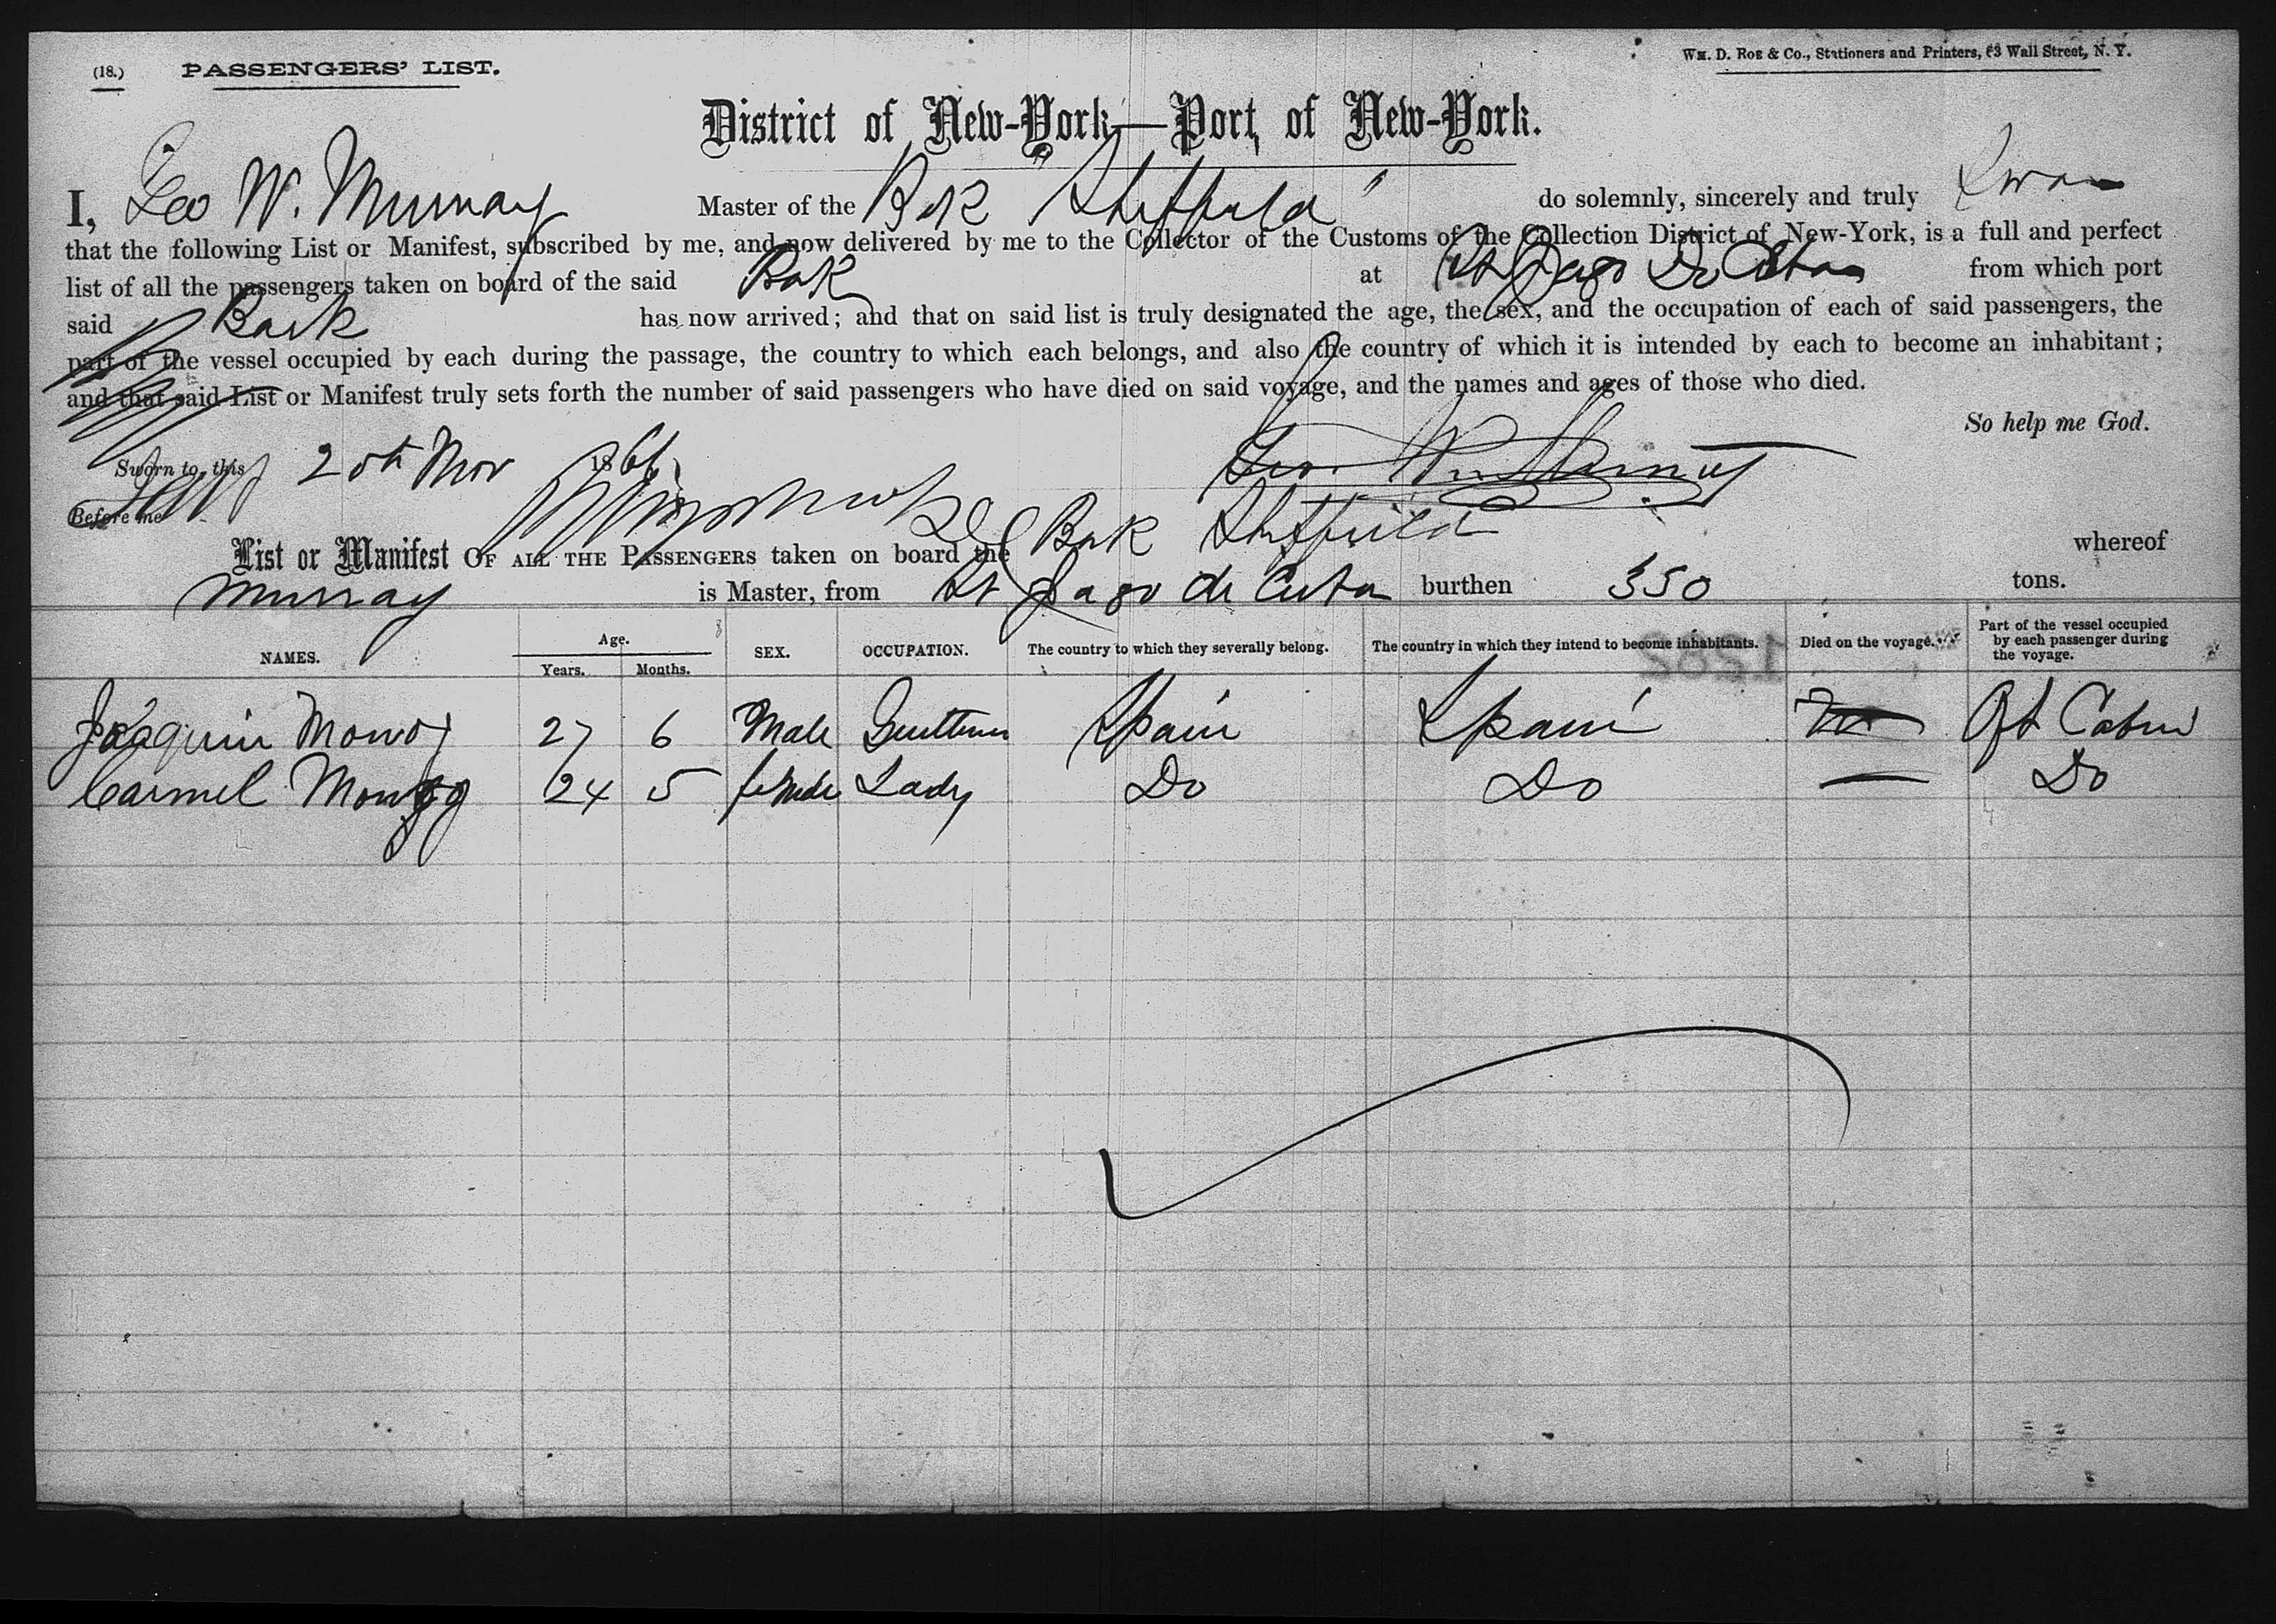 (18.) PASSENGERS' LIST. Wm. D. Roe & Co., Stationers and Printers, 63 Wall Street, N. Y.
District of New-York—Port of New-York.
I, Geo W. Murray Master of the Bark "Sheffield" do solemnly, sincerely and truly Swear
that the following List or Manifest, subscribed by me, and now delivered by me to the Collector of the Customs of the Collection District of New-York, is a full and perfect
list of all the passengers taken on board of the said Bark at St Jago De Cuba from which port
said Bark has now arrived; and that on said list is truly designated the age, the sex, and the occupation of each of said passengers, the
part of the vessel occupied by each during the passage, the country to which each belongs, and also the country of which it is intended by each to become an inhabitant;
and that said List or Manifest truly sets forth the number of said passengers who have died on said voyage, and the names and ages of those who died.
So help me God.
Sworn to, this 20th Nov 1866 Geo. W. Murray
Before me
List or Manifest OF ALL THE PASSENGERS taken on board the Bark Sheffield whereof
Murray is Master, from St Jago de Cuba burthen 350 tons.
NAMES. Age. Years. Months. SEX. OCCUPATION. The country to which they severally belong. The country in which they intend to become inhabitants. Died on the voyage. Part of the vessel occupied by each passenger during the voyage.
Joaquin 27 6 Male Spain Spain Aft Cabin
Carmel 24 5 female Lady Do Do — Do